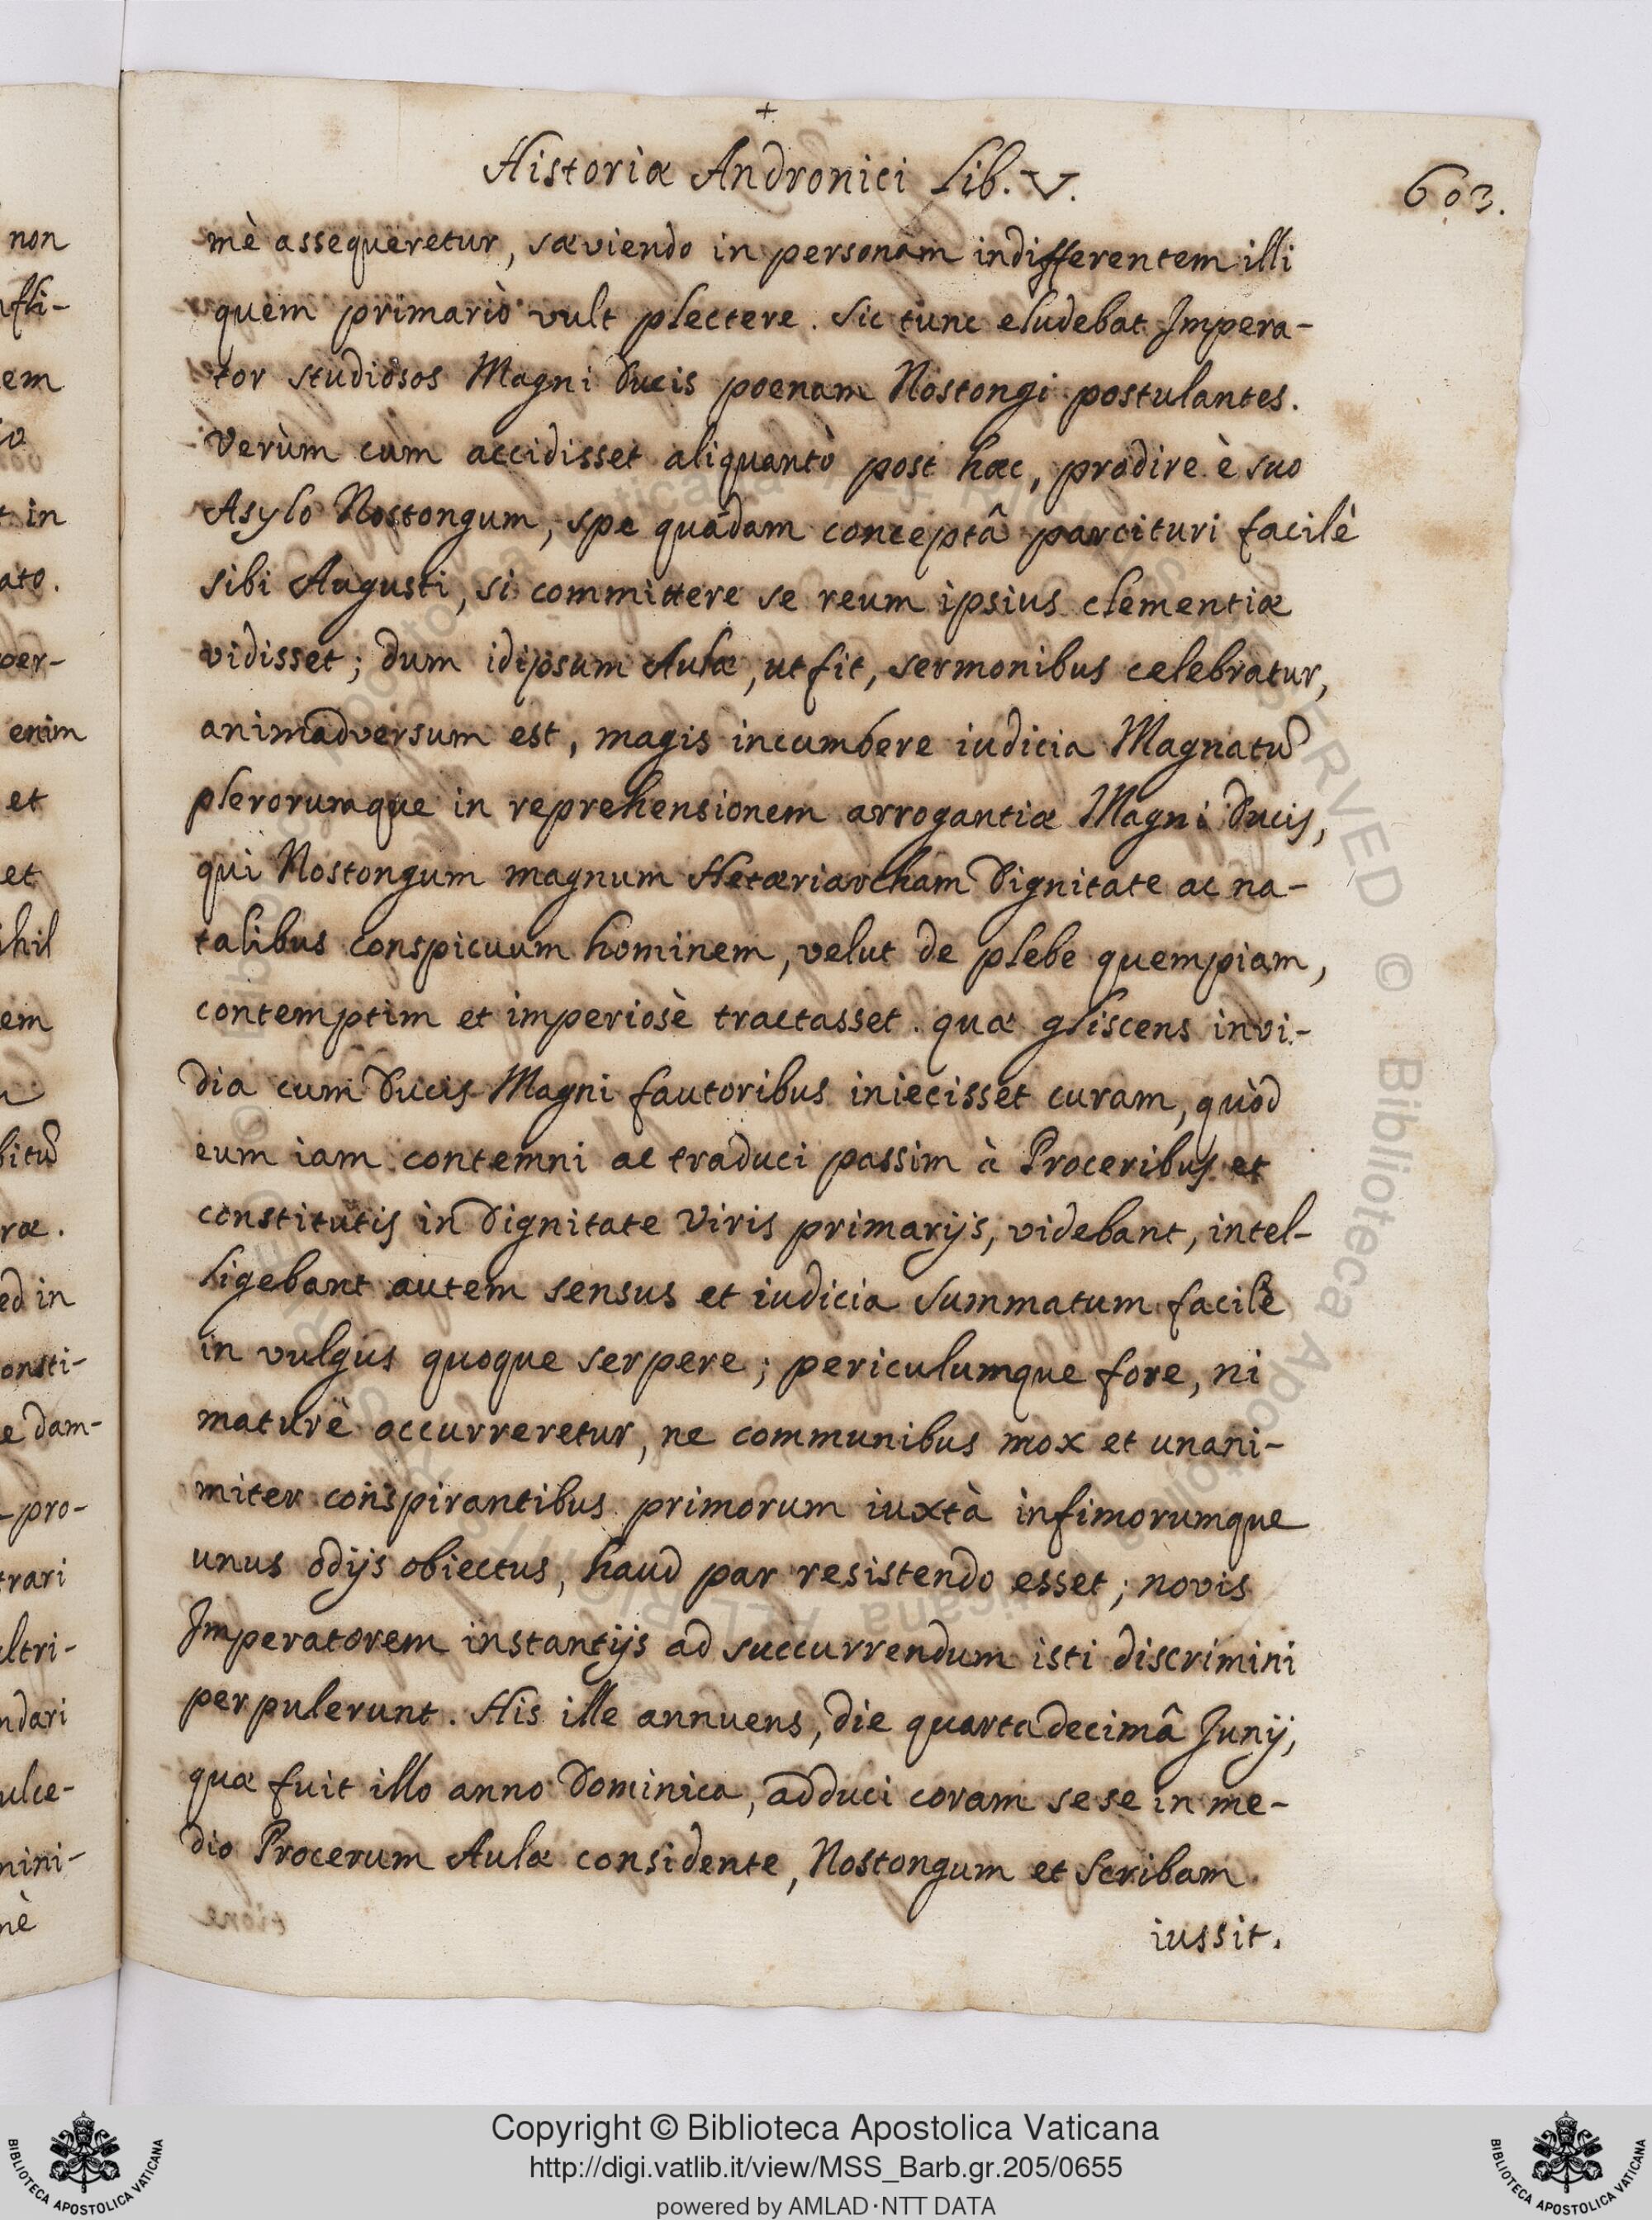 +
Historiæ Andronici Lib. V.
603.
mè assequeretur, sæviendo in personam indifferentem illi
quem primariò vult plectere. Sic tunc eludebat Impera-
tor studiosos Magni Ducis poenam Nostongi postulantes.
Verùm cùm accidisset aliquantò post hæc, prodire è suo
Asylo Nostongum, spe quâdam conceptâ parcituri facilè
sibi Augusti, si committere se reum ipsius clementiæ
vidisset; dum idipsum Aulæ, ut fit, sermonibus celebratur,
animadversum est, magis incumbere iudicia Magnatũ
plerorumque in reprehensionem arrogantiæ Magni Ducis,
qui Nostongum magnum Hetæriarcham Dignitate ac na-
talibus conspicuum hominem, velut de plebe quempiam,
contemptim et imperiosè tractasset. quæ gliscens invi-
dia cum Ducis Magni fautoribus iniecisset curam, quòd
eum iam contemni ac traduci passim à Proceribus et
constitutis in Dignitate Viris primarijs, videbant, intel-
ligebant autem sensus et iudicia Summatum facilè
in vulgus quoque serpere; periculumque fore, ni
maturè accurreretur, ne communibus mox et unani-
miter conspirantibus primorum iuxtà infimorumque
unus odijs obiectus, haud par resistendo esset; novis
Imperatorem instantijs ad succurrendum isti discrimini
perpulerunt. His ille annuens, die quartadecimâ Junij,
quæ fuit illo anno Dominica, adduci coram sese in me-
dio Procerum Aulæ considente, Nostongum et Scribam
iussit.
non
em
t in
ato.
per-
enim
et
et
ihil
em
bitũ
ræ.
ed in
onsti-
e dam-
pro-
trari
ultri-
ndari
ulce-
mini-
mè
Copyright © Biblioteca Apostolica Vaticana
http://digi.vatlib.it/view/MSS_Barb.gr.205/0655
powered by AMLAD·NTT DATA
BIBLIOTECA APOSTOLICA VATICANA
BIBLIOTECA APOSTOLICA VATICANA